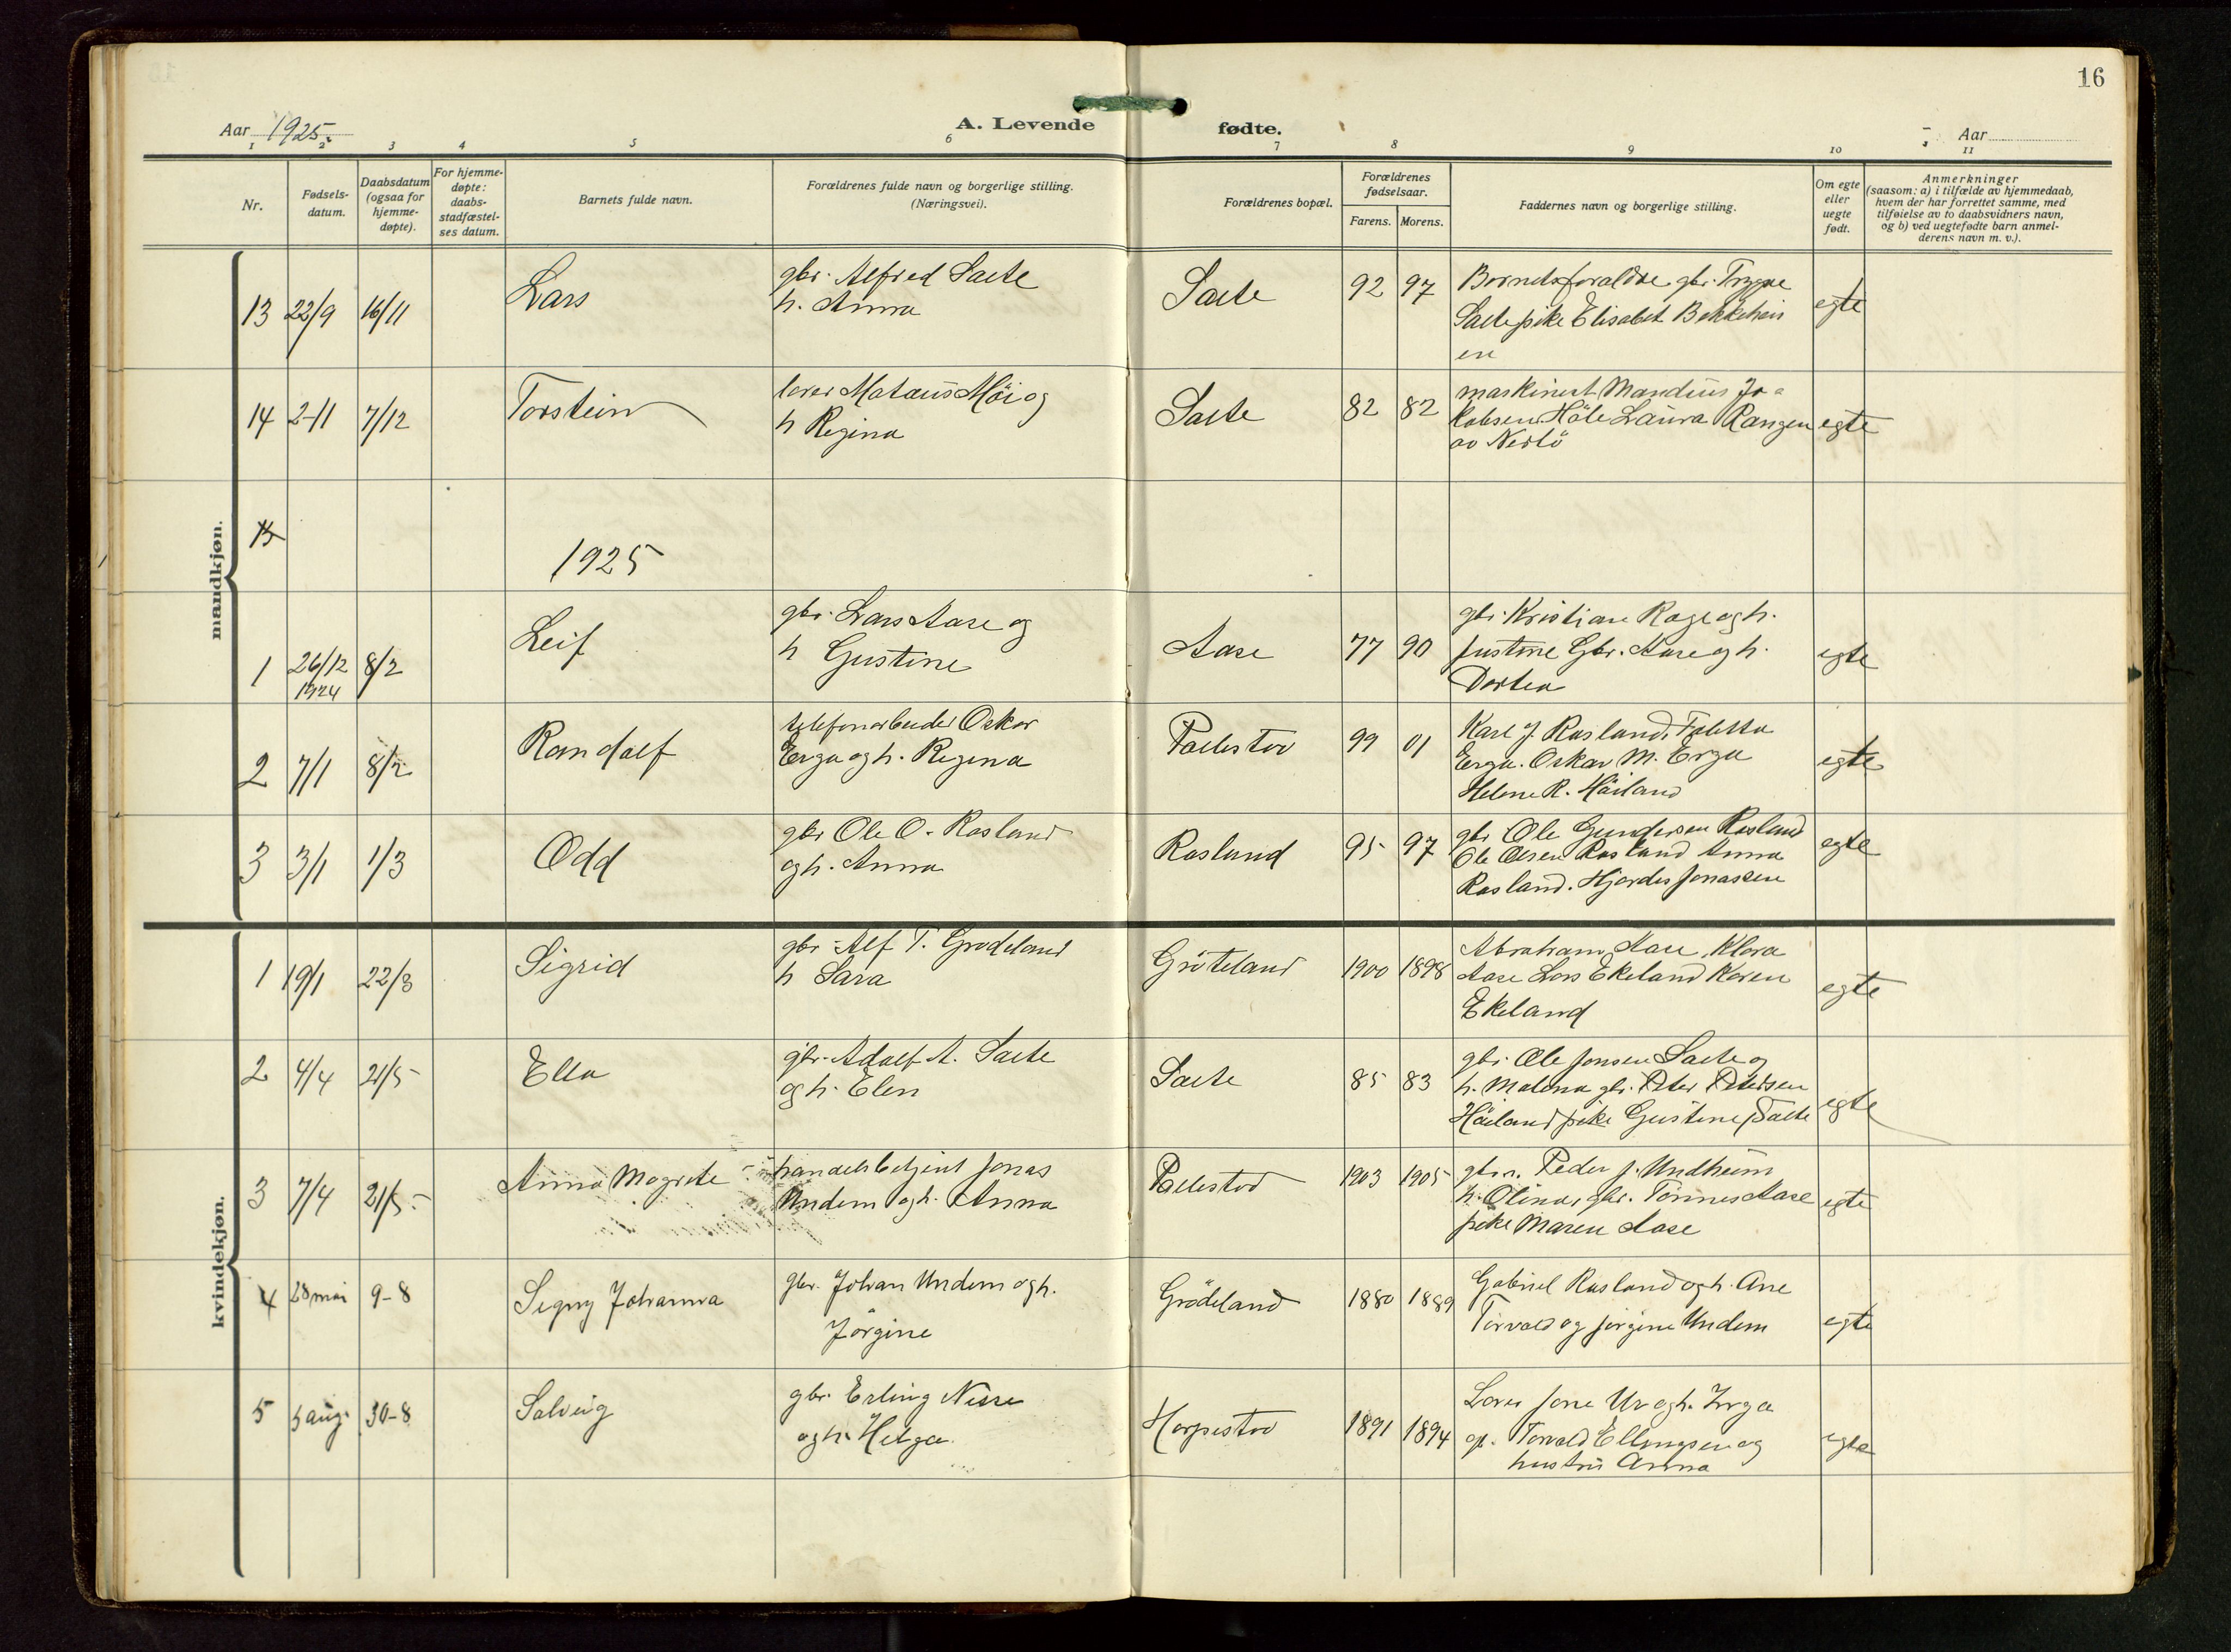 16
Aar 1925.
A. Levende fødte.
Aar
1 2 3 4 5 6 7 8 9 10 11
Nr.
Fødsels-
datum.
Daabsdatum
(ogsaa for
hjemme-
døpte).
For hjemme-
døpte:
daabs-
stadfæstel-
ses datum.
Barnets fulde navn.
Forældrenes fulde navn og borgerlige stilling.
(Næringsvei).
Forældrenes bopæl.
Forældrenes
fødselsaar.
Farens. Morens.
Faddernes navn og borgerlige stilling.
Om egte
eller
uegte
født.
Anmerkninger
(saasom: a) i tilfælde av hjemmedaab,
hvem der har forrettet samme, med
tilføielse av to daabsvidners navn,
og b) ved uegtefødte barn anmel-
derens navn m. v.).
mandkjøn.
13 22/9 16/11 Lars
gbr. Alfred Salte
h. Anna
Salte 92 97
gbr. Trygve
Salte pike Elisabet
en
egte
14 2-11 7/12 Torstein
Mataus Möi og
h Regina
Salte 82 82
maskinist Mandius Ja-
kobsen Laura
av
egte
15
1925
1 26/12 1924 8/2 Leif
gbr. Lars Aase og
h Gustine
Aase 77 90
gbr. Kristian Rage og h.
Justine Gbr. Aase og h.
Dortea
egte
2 7/1 8/2 Randolf
telefonarbeider Oskar
Erga og h. Regina
99 01
Karl J. Rosland,
Erga. Oskar M. Erga
Helene R. Höiland
egte
3 3/1 1/3 Odd
gbr Ole O. Rosland
og h. Anna
Rosland 95 97
gbr Ole Gundersen Rosland
Ole Olsen Rosland Anna
Rosland. Hjørdis Jonassen
egte
kvindekjøn.
1 19/1 22/3 Sigrid
gbr Alf T. Grødeland
h Sara
Gröteland 1900 1898
Abraham Aase, Klara
Aase Lars Ekeland Karen
Ekeland
egte
2 4/4 21/5 Ella
gbr. Adolf A. Salte
og h. Elen
Salte 85 83
gbr. Ole Jonsen Salte og
h. Malena gbr. Peter Petersen
Höiland pike Gustine Salte
egte
3 7/4 21/5 Anna Magrete
handelsbetjent Jonas
Undem og h. Anna
1903 1905
gbr. Peder J. Undheim
h. Olina, gbr. Tönnes Aase
pike Maren Aase
egte
4 28 mai 9-8 Signy Johanna
gbr. Johan Undem og h.
Jörgine
Grödeland 1880 1889
Gabriel Rosland og h. Ane
Torvald og Jörgine Undem
egte
5 5 aug. 30-8 Solveig
gbr. Erling Nesse
og h. Helga.
1891 1894
og h. Inga
Torvald Ellingsen og
hustru Anna
egte